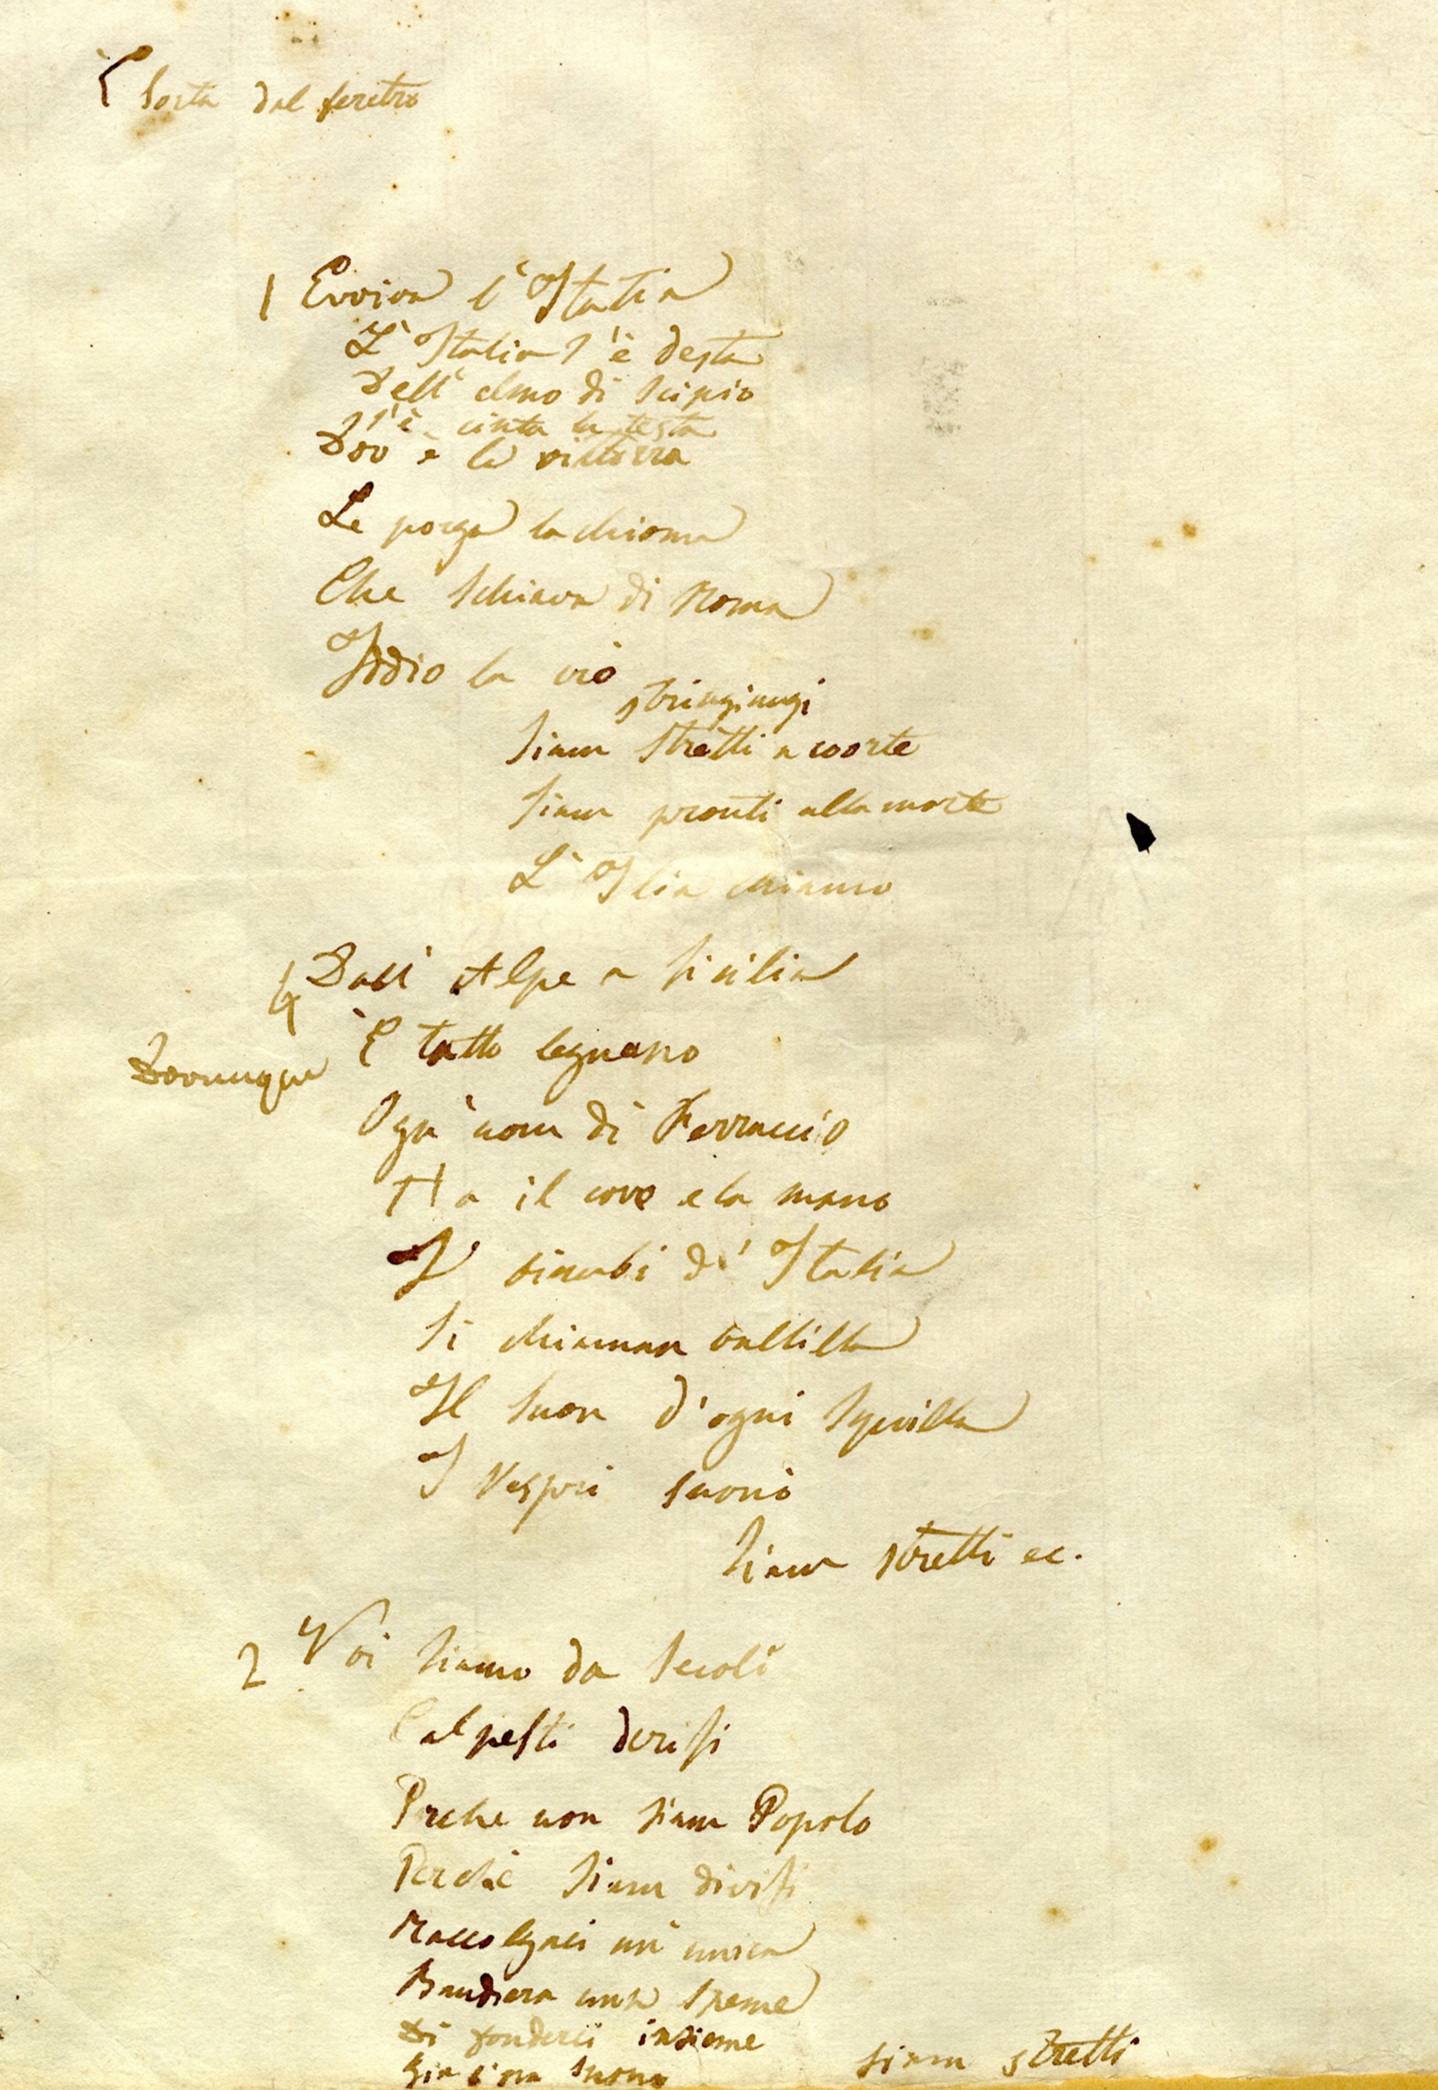 È Sorta dal feretro
1 Evviva l'Italia
L'Italia s'è desta
Dell'elmo di Scipio
S'è cinta la testa
Dov'è la vittoria
Le porga la chioma
Che schiava di Roma
Iddio la creò
stringiamgi
Siam Stretti a coorte
Siam pronti alla morte
L'Ilia chiamò
4 Dall'Alpe a Sicilia
È tutto legnano
Dovunque
Ogn'uom di Ferruccio
Ha il core e la mano
I bimbi d'Italia
Si chiaman ballilla
Il suon d'ogni squilla
I Vespri suonò
Siam stretti ec.
2 Noi Siamo da Secoli
Calpesti derisi
Perche non siam Popolo
Perchè Siam divisi
Raccolgaci un'unica
Bandiera una Speme
Di fonderci insieme
Già l'ora suonò
siam stretti